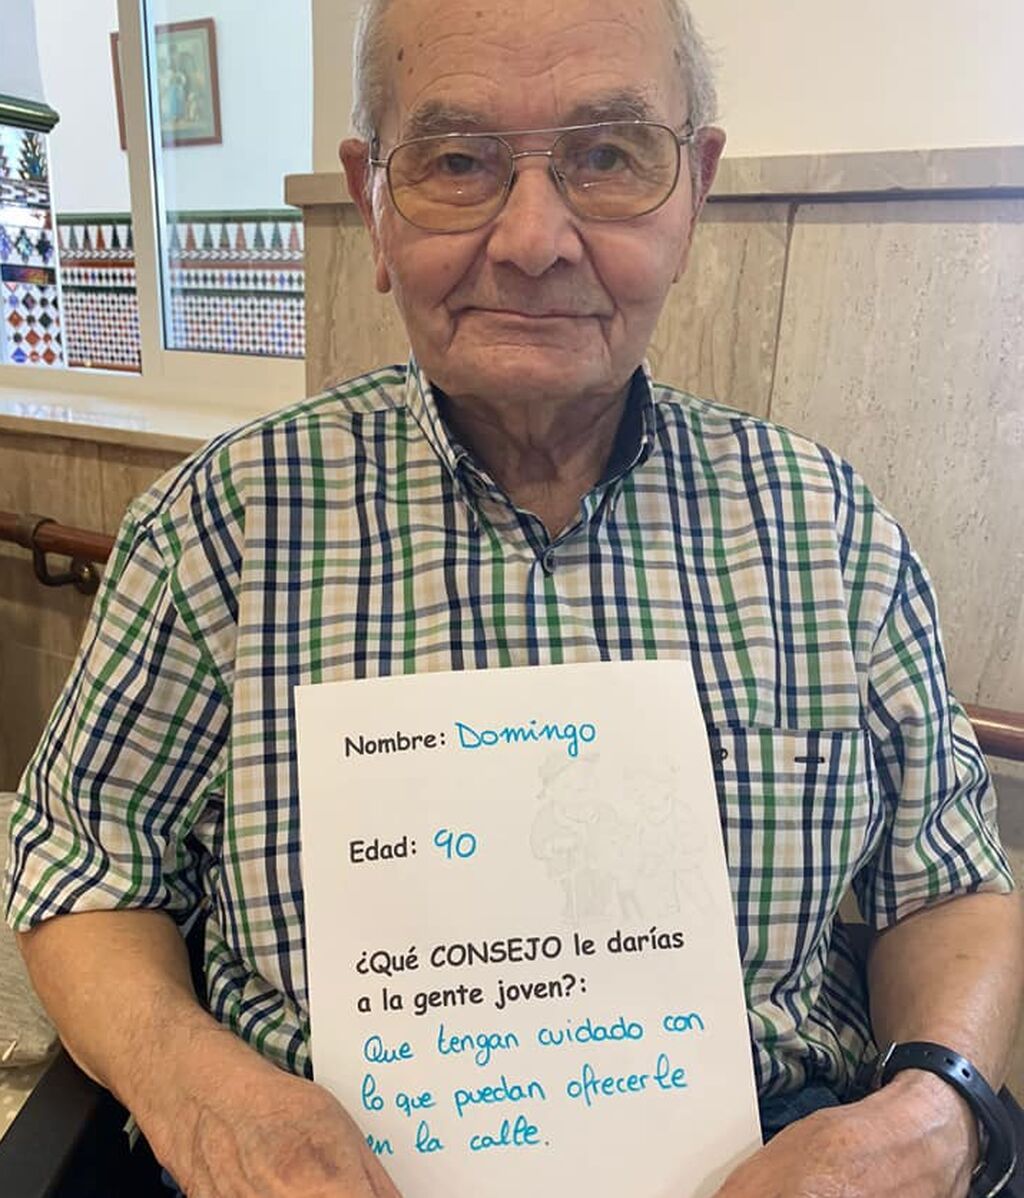 Nombre: Domingo
Edad: 90
¿Qué CONSEJO le darías
a la gente joven?:
Que tengan cuidado con
lo que puedan ofrecerle
en la calle.